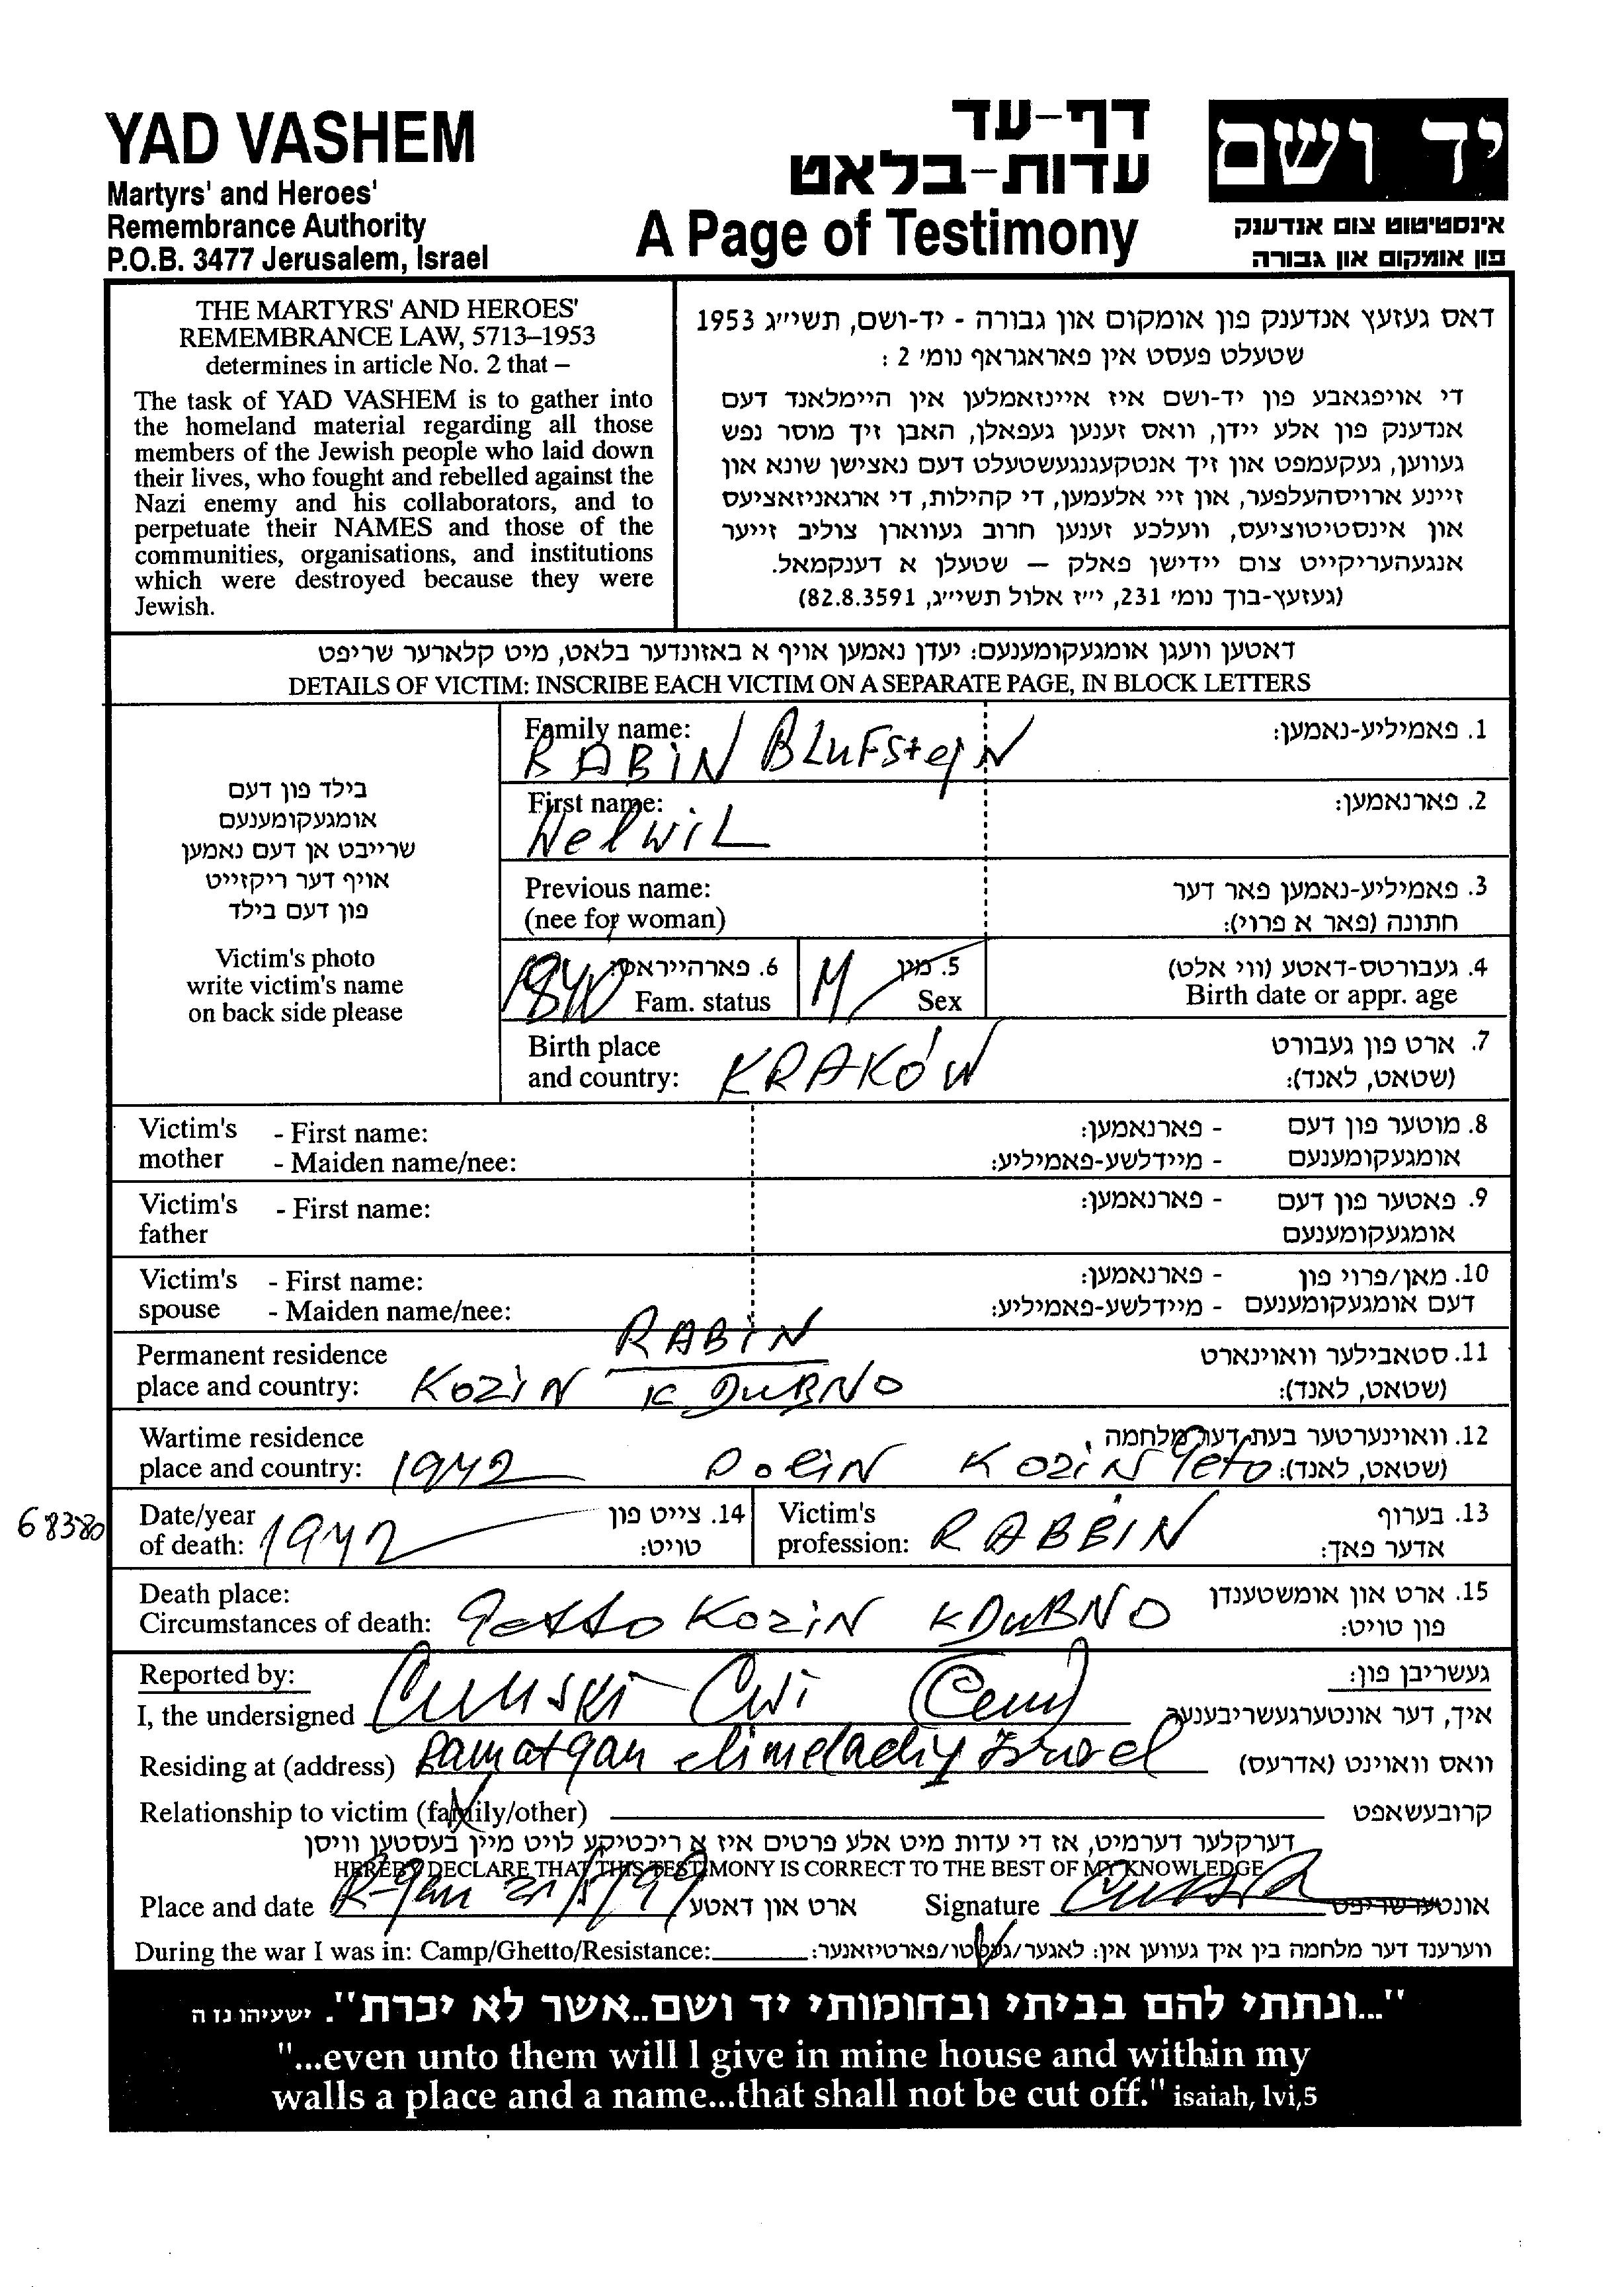 YAD VASHEM
Martyrs' and Heroes'
Remembrance Authority
P.O.B. 3477 Jerusalem, Israel
דף-עד
עדות-בלאט
A Page of Testimony
יד ושם
אינסטיטוט צום אנדענק
פון אומקום און גבורה
THE MARTYRS' AND HEROES'
REMEMBRANCE LAW, 5713–1953
determines in article No. 2 that –
The task of YAD VASHEM is to gather into
the homeland material regarding all those
members of the Jewish people who laid down
their lives, who fought and rebelled against the
Nazi enemy and his collaborators, and to
perpetuate their NAMES and those of the
communities, organisations, and institutions
which were destroyed because they were
Jewish.
דאס געזעץ אנדענק פון אומקום און גבורה - יד-ושם, תשי״ג 1953
שטעלט פעסט אין פאראגראף נומ׳ 2 :
די אויפגאבע פון יד-ושם איז איינזאמלען אין היימלאנד דעם
אנדענק פון אלע יידן, וואס זענען געפאלן, האבן זיך מוסר נפש
געווען, געקעמפט און זיך אנטקעגנגעשטעלט דעם נאצישן שונא און
זיינע ארויסהעלפער, און זיי אלעמען, די קהילות, די ארגאניזאציעס
און אינסטיטוציעס, וועלכע זענען חרוב געווארן צוליב זייער
אנגעהעריקייט צום יידישן פאלק — שטעלן א דענקמאל.
(געזעץ-בוך נומ׳ 231, י״ז אלול תשי״ג, 82.8.3591)
דאטען וועגן אומגעקומענעם: יעדן נאמען אויף א באזונדער בלאט, מיט קלארער שריפט
DETAILS OF VICTIM: INSCRIBE EACH VICTIM ON A SEPARATE PAGE, IN BLOCK LETTERS
בילד פון דעם
אומגעקומענעם
שרייבט אן דעם נאמען
אויף דער ריקזייט
פון דעם בילד
Victim's photo
write victim's name
on back side please
Family name: RABIN BLUFStejN 1. פאמיליע-נאמען:
First name: NelwiL 2. פארנאמען:
Previous name: 3. פאמיליע-נאמען פאר דער
(nee for woman) חתונה (פאר א פרוי):
1840 6. פארהייראט: M 5. מין 4. געבורטס-דאטע (ווי אלט)
Fam. status Sex Birth date or appr. age
Birth place 7. ארט פון געבורט
and country: KRAKÓW (שטאט, לאנד):
Victim's - First name: - פארנאמען: 8. מוטער פון דעם
mother - Maiden name/nee: - מיידלשע-פאמיליע: אומגעקומענעם
Victim's - First name: - פארנאמען: 9. פאטער פון דעם
father אומגעקומענעם
Victim's - First name: - פארנאמען: 10. מאן/פרוי פון
spouse - Maiden name/nee: - מיידלשע-פאמיליע: דעם אומגעקומענעם
RABIN
Permanent residence 11. סטאבילער וואוינארט
place and country: KOZIN K DUBNO (שטאט, לאנד):
Wartime residence 12. וואוינערטער בעת דער מלחמה
place and country: 1942 POLIN KOZIN geto (שטאט, לאנד):
68380
Date/year 14. צייט פון Victim's 13. בערוף
of death: 1942 טויט: profession: RABBIN אדער פאך:
Death place: 15. ארט און אומשטענדן
Circumstances of death: getto KOZIN K DUBNO פון טויט:
Reported by: געשריבן פון:
I, the undersigned Cwi איך, דער אונטערגעשריבענער
Residing at (address) Ramatgan Izrael וואס וואוינט (אדרעס)
Relationship to victim (family/other) קרובעשאפט
דערקלער דערמיט, אז די עדות מיט אלע פרטים איז א ריכטיקע לויט מיין בעסטען וויסן
HEREBY DECLARE THAT THIS TESTIMONY IS CORRECT TO THE BEST OF MY KNOWLEDGE
Place and date R-gan ארט און דאטע Signature אונטערשריפט
During the war I was in: Camp/Ghetto/Resistance: ווערענד דער מלחמה בין איך געווען אין: לאגער/געטטו/פארטיזאנער:
"...ונתתי להם בביתי ובחומותי יד ושם..אשר לא יכרת". ישעיהו נז ה
"...even unto them will I give in mine house and within my
walls a place and a name...that shall not be cut off." isaiah, lvi,5